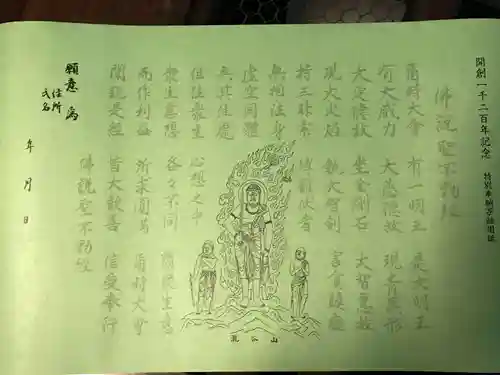 開創一千二百年記念 特別奉納写経用紙
佛説聖不動経
爾時大會 有一明王 是大明王
有大威力 大悲徳故 現青黒形
大定徳故 坐金剛石 大智慧故
現大火焔 執大智剣 害貪瞋痴
持三昧索 縛難伏者
無相法身
虚空同體
無其住處
但住衆生 心想之中
衆生意想 各々不同 隨衆生意
而作利益 所求圓満 爾時大會
聞説是経 皆大歓喜 信受奉行
佛説聖不動経
願意 為
住所
氏名
年 月 日
瀧谷山